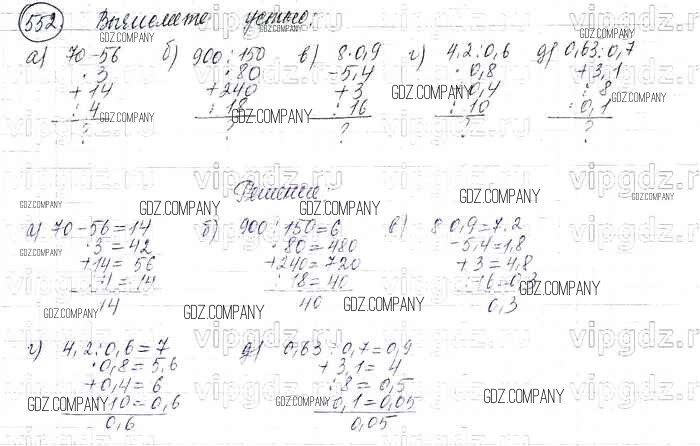 552 Вычислите устно:
а) 70-56 б) 900:150 в) 8·0,9 г) 4,2:0,6 д) 0,63:0,7
·3 ·80 -5,4 ·0,8 +3,1
+14 +240 +3 +0,4 :8
:4 :18 :16 :10 ·0,1
? ? ? ? ?
Решение:
а) 70-56=14 б) 900:150=6 в) 8·0,9=7,2
·3=42 ·80=480 -5,4=1,8
+14=56 +240=720 +3=4,8
:4=14 :18=40 :16=0,3
14 40 0,3
г) 4,2:0,6=7 д) 0,63:0,7=0,9
·0,8=5,6 +3,1=4
+0,4=6 :8=0,5
:10=0,6 ·0,1=0,05
0,6 0,05
GDZ.COMPANY
vipgdz.ru